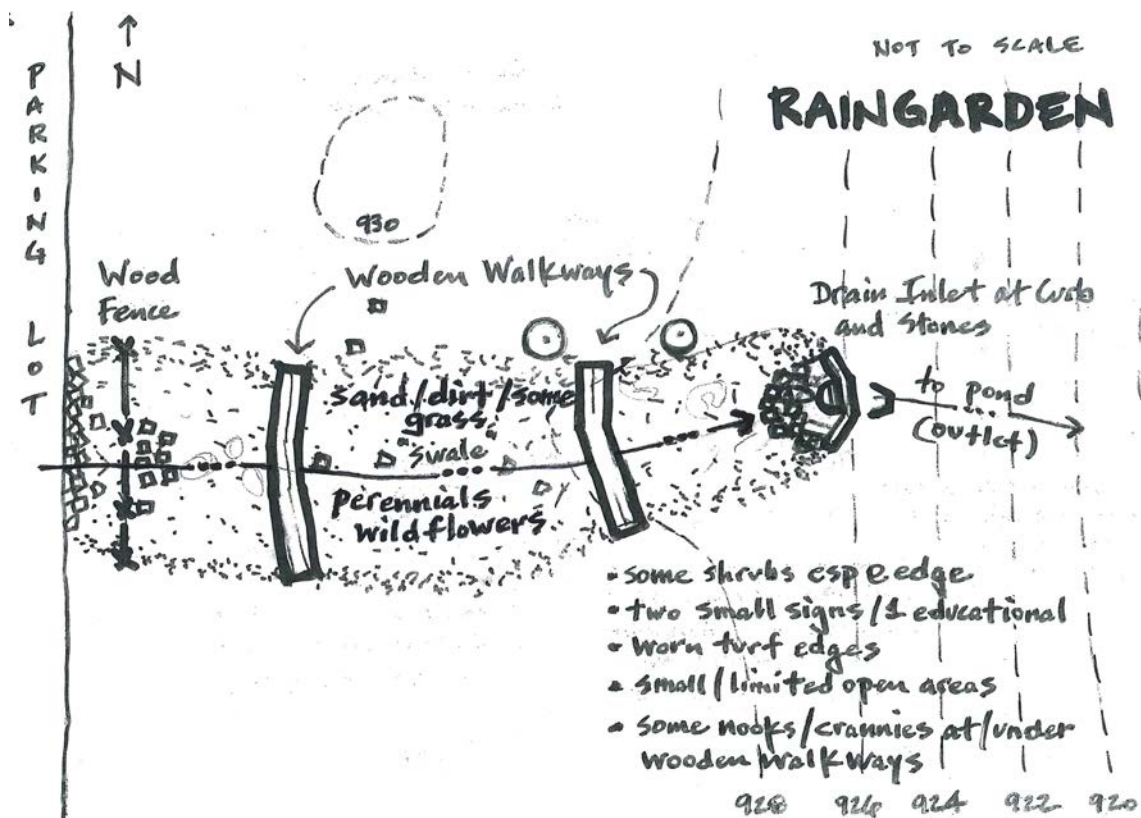 NOT TO SCALE
RAINGARDEN
N
PARKING LOT
930
Wood
Fence
Wooden Walkways
Drain Inlet at Curb
and Stones
sand/dirt/some
grass
swale
perennials
wildflowers
to pond
(outlet)
• some shrubs esp @ edge
• two small signs/1 educational
• worn turf edges
• small/limited open areas
• some nooks/crannies at/under
wooden walkways
928 926 924 922 920